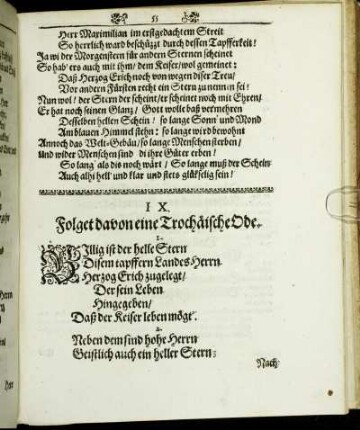 55
Herr Maximilian im erstgedachtem Streit
So herrlich ward beschützzt durch dessen Tapfferkeit!
Ja wi der Morgenstern für andern Sternen scheinet
So hab' ers auch mit ihm/ dem Keiser/ wol gemeinet:
Daß Herzog Erich noch von wegen diser Treu/
Vor andern Fürsten recht ein Stern zu nennen sei!
Nun wol! der Stern der scheint/ er scheinet noch mit Ehren/
Er hat noch seinen Glanz/ Gott wolle daß vermehren
Desselben hellen Schein! so lange Sonn' und Mond
Am blauen Himmel stehn: so lange wird bewohnt
Annoch das Welt-Gebäu/ so lange Menschen sterben/
Und wider Menschen sind di ihre Güter erben!
So lang' als dis noch wärt/ So lange muß der Schein
Auch alhi hell und klar und stets glükselig sein!
IX.
Folget davon eine Trochäische Ode.
1.
Billig ist der helle Stern
Disem tapffern Landes Herrn
Herzog Erich zugelegt/
Der sein Leben
Hingegeben/
Daß der Keiser leben mögt'.
2.
Neben dem sind hohe Herrn
Geistlich auch ein heller Stern:
Nach